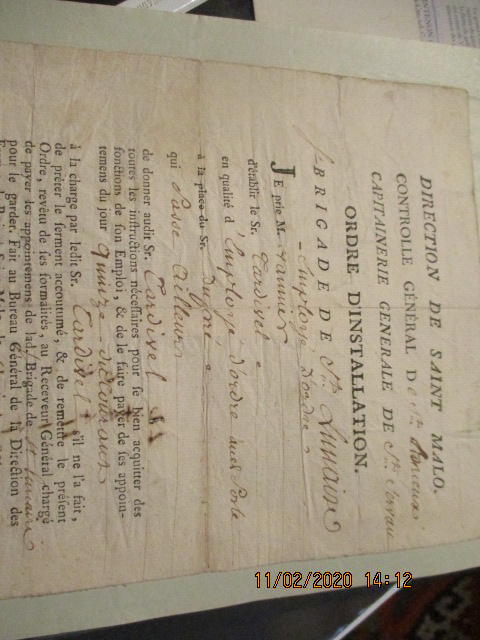 DIRECTION DE SAINT MALO.
CONTROLLE GÉNÉRAL De St.
CAPITAINERIE GENERALE DE St. Servan
ORDRE D'INSTALLATION.
BRIGADE DE St. Lunaire
Employé d'ordre
JE prie M. Vannier
d'établir le Sr. Tardivel
en qualité d'Employé d'ordre
à la place du Sr.
qui Passe ailleurs
de donner audit Sr. Tardivel
toutes les instructions nécessaires pour se bien acquitter des
fonctions de son Emploi, & de le faire payer de ses appoin-
temens du jour quinze du courant
à la charge par ledit Sr. Tardivel s'il ne l'a fait,
de prêter le serment accoutumé, & de remettre le présent
Ordre, revêtu de ses formalités au Receveur Général chargé
de payer les appointemens de lad. Brigade de St Lunaire
pour le garder. Fait au Bureau Général de la Direction des
11/02/2020 14:12